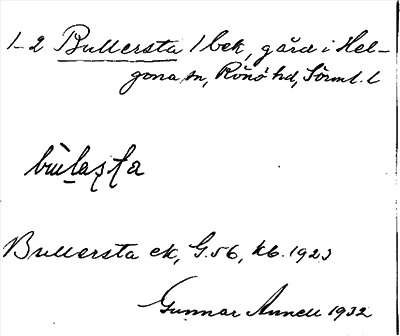 1-2 Bullersta 1 bek, gård i Hel-
gona sn, Rönö hd, Sörml. l
Bullersta ek, G. 56, kb. 1923
Gunnar Annell 1932